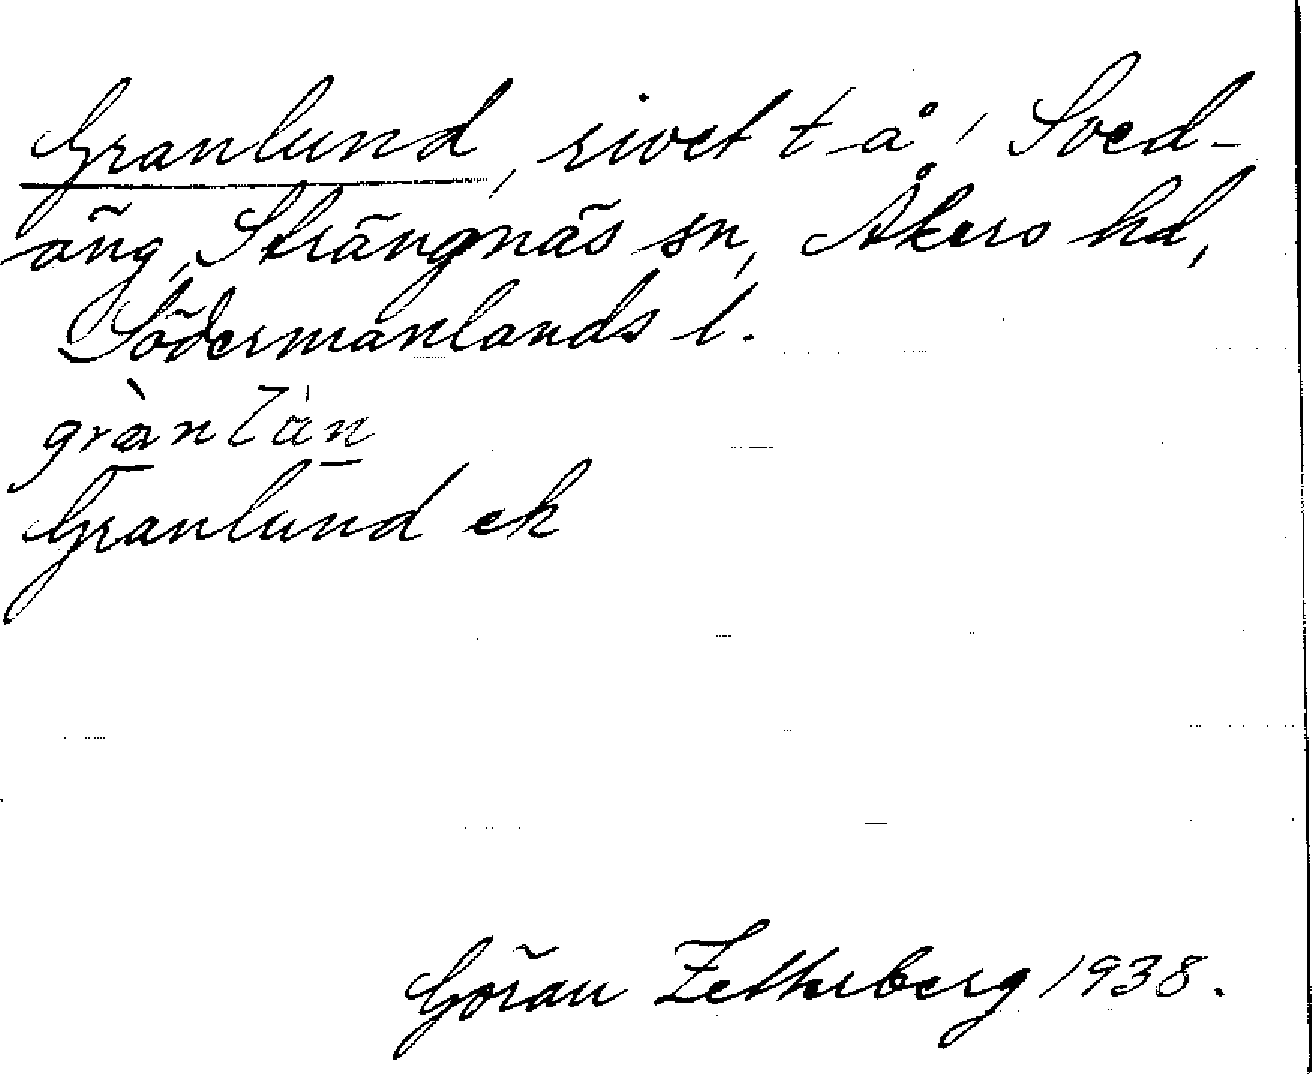 Granlund, rivet t å i Sved-
äng, Strängnäs sn, Åkers hd,
Södermanlands l.
grànlàn
Granlund ek
Göran Zetterberg 1938.